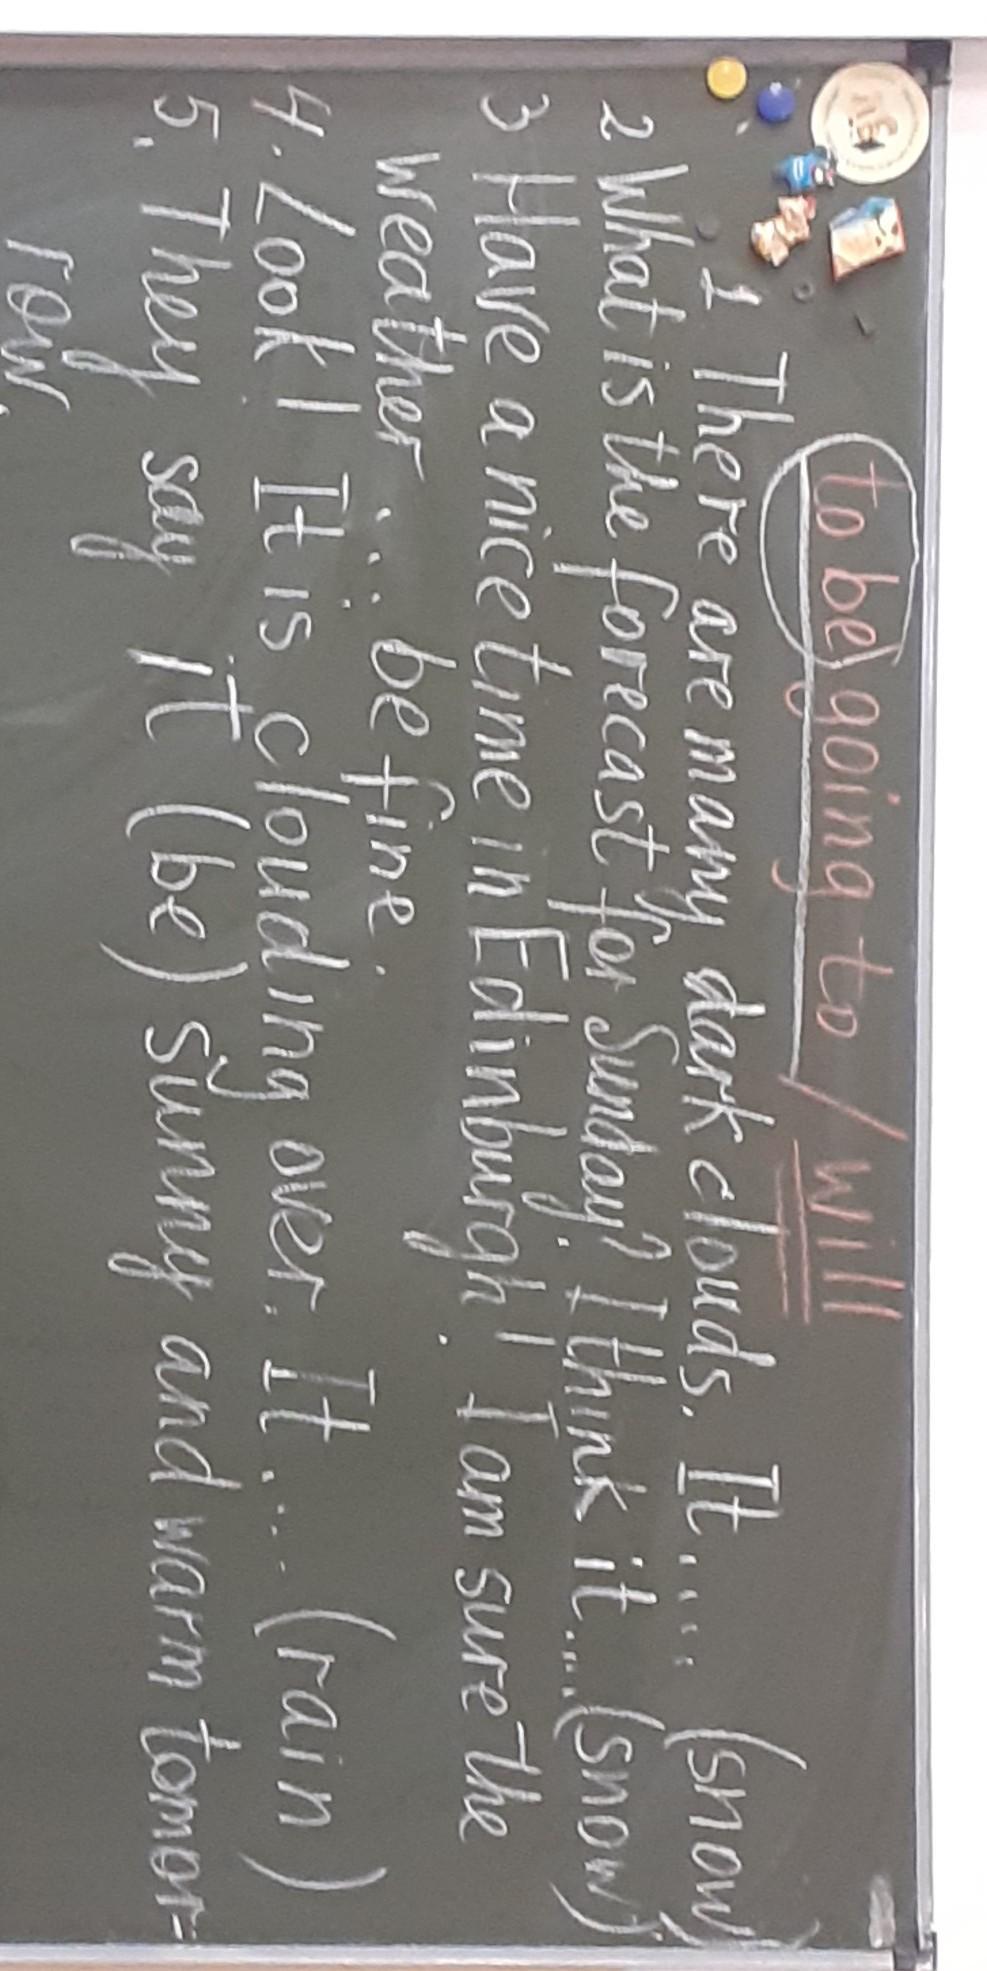 to be going to / will
1 There are many dark clouds. It.... (snow)
2 What is the forecast for Sunday? I think it.... (snow)
3 Have a nice time in Edinburgh! I am sure the
weather ... be fine.
4. Look! It is clouding over. It.... (rain)
5. They say it (be) sunny and warm tomor-
row.